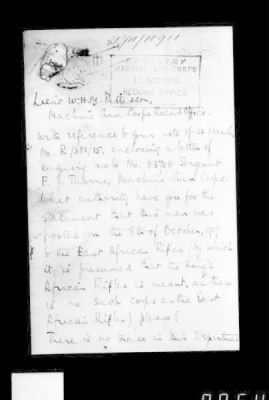 MACHINE GUN CORPS
RECORD OFFICE
Lieut. W.H.
Machine Gun Corps Record Office.
With reference to your note of
No. R/381/15, enclosing a letter of
enquiry as to No. Sergeant
F. J. Thorne, Machine Gun Corps.
What authority have you for the
statement that this man was
posted on the 8th of October, 1917
to the East African Rifles (by which
it is presumed that the King's
African Rifles is meant, as there
is no such corps as the East
African Rifles) please?
There is no trace in this Department